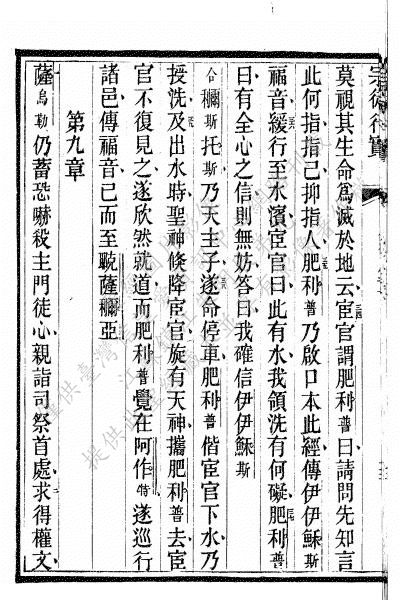 宗徒行實
莫視其生命為滅於地云宦官謂肥利普曰請問先知言
此何指指己抑指人肥利普乃啟口本此經傳伊伊穌斯
福音緩行至水濱宦官曰此有水我領洗有何礙肥利普
曰有全心之信則無妨答曰我確信伊伊穌斯
合穪斯托斯乃天主子遂命停車肥利普偕宦官下水乃
授洗及出水時聖神倏降宦官旋有天神攜肥利普去宦
官不復見之遂欣然就道而肥利普覺在阿作特遂巡行
諸邑傳福音已而至
薩穪亞
第九章
薩烏勒仍蓄恐嚇殺主門徒心親詣司祭首處求得權文